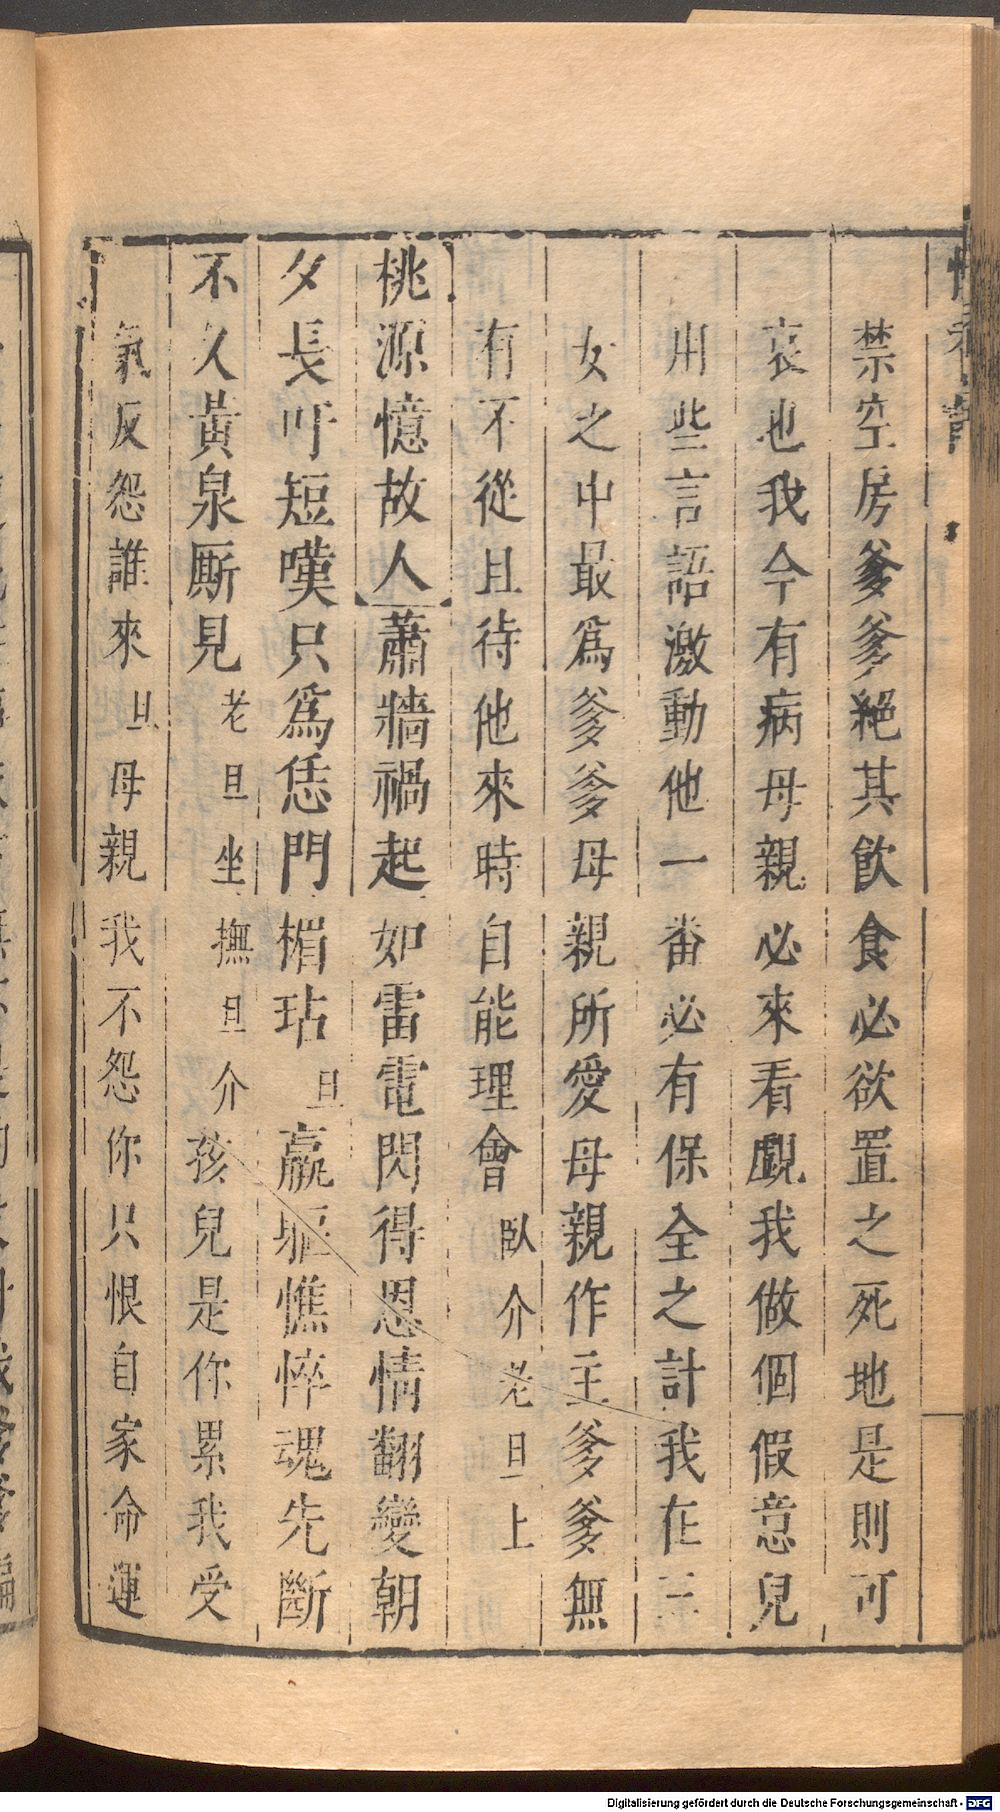 禁空房爹爹絕其飲食必欲置之死地是則可
哀也我今有病母親必來看覷我做個假意兒
用些言語激動他一番必有保全之計我在三
女之中最爲爹爹母親所愛母親作主爹爹無
有不從且待他來時自能理會臥介老旦上
桃源憶故人蕭牆禍起如雷電閃得恩情翻變朝
夕長吁短嘆只爲恁門楣玷旦羸軀憔悴魂先斷
不久黃泉厮見老旦坐撫旦介孩兒是你累我受
氣反怨誰來旦母親我不怨你只恨自家命運
Digitalisierung gefördert durch die Deutsche Forschungsgemeinschaft - DFG